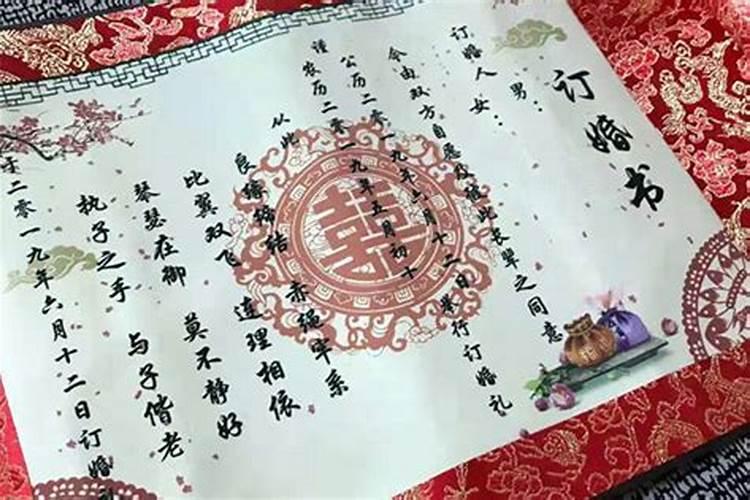 订婚书
订婚人男：
女：
今由双方自愿及彼此长辈之同意
公历二零一九年六月十二日举行订婚礼
谨农历二零一九年五月初十
从此 赤绳牢系
良缘缔结 连理相依
比翼双飞 莫不静好
琴瑟在御 与子偕老
执子之手
于二零一九年六月十二日订婚